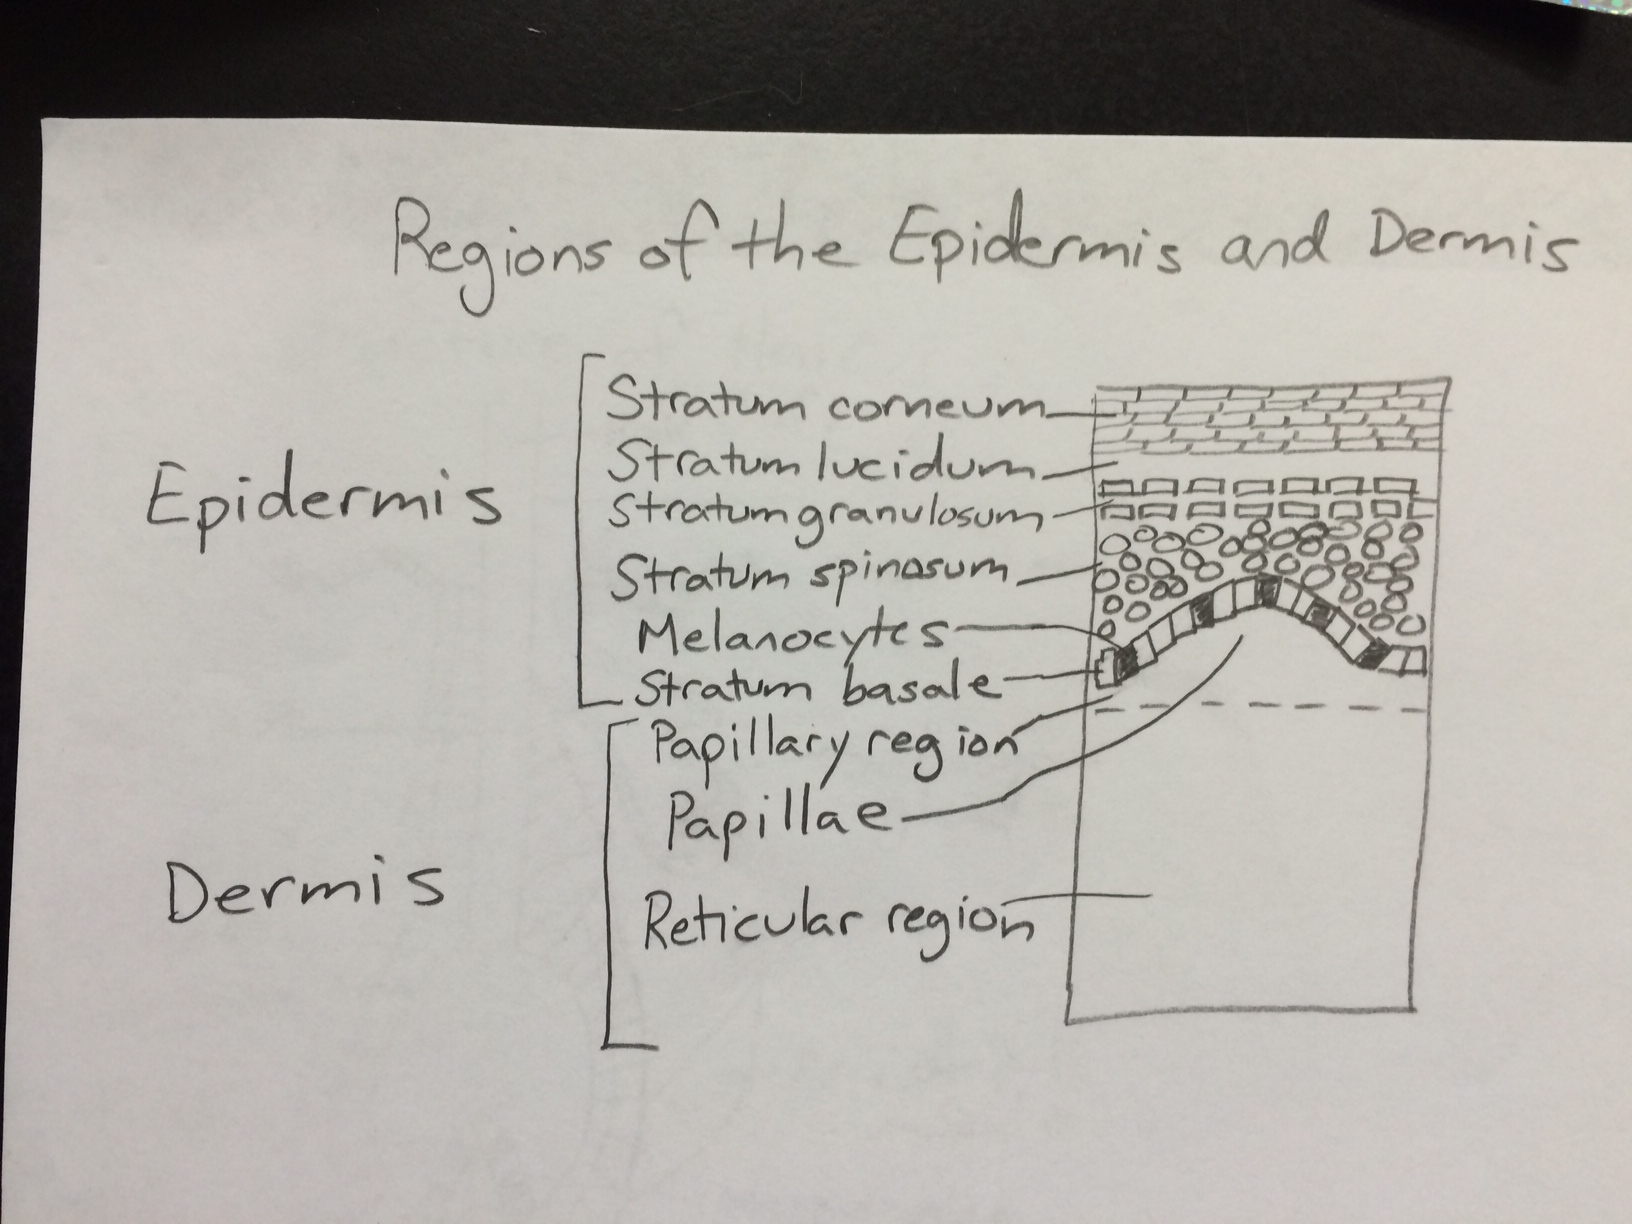 Regions of the Epidermis and Dermis
Stratum corneum
Stratum lucidum
Epidermis
Stratum granulosum
Stratum spinosum
Melanocytes
Stratum basale
Papillary region
Papillae
Dermis
Reticular region